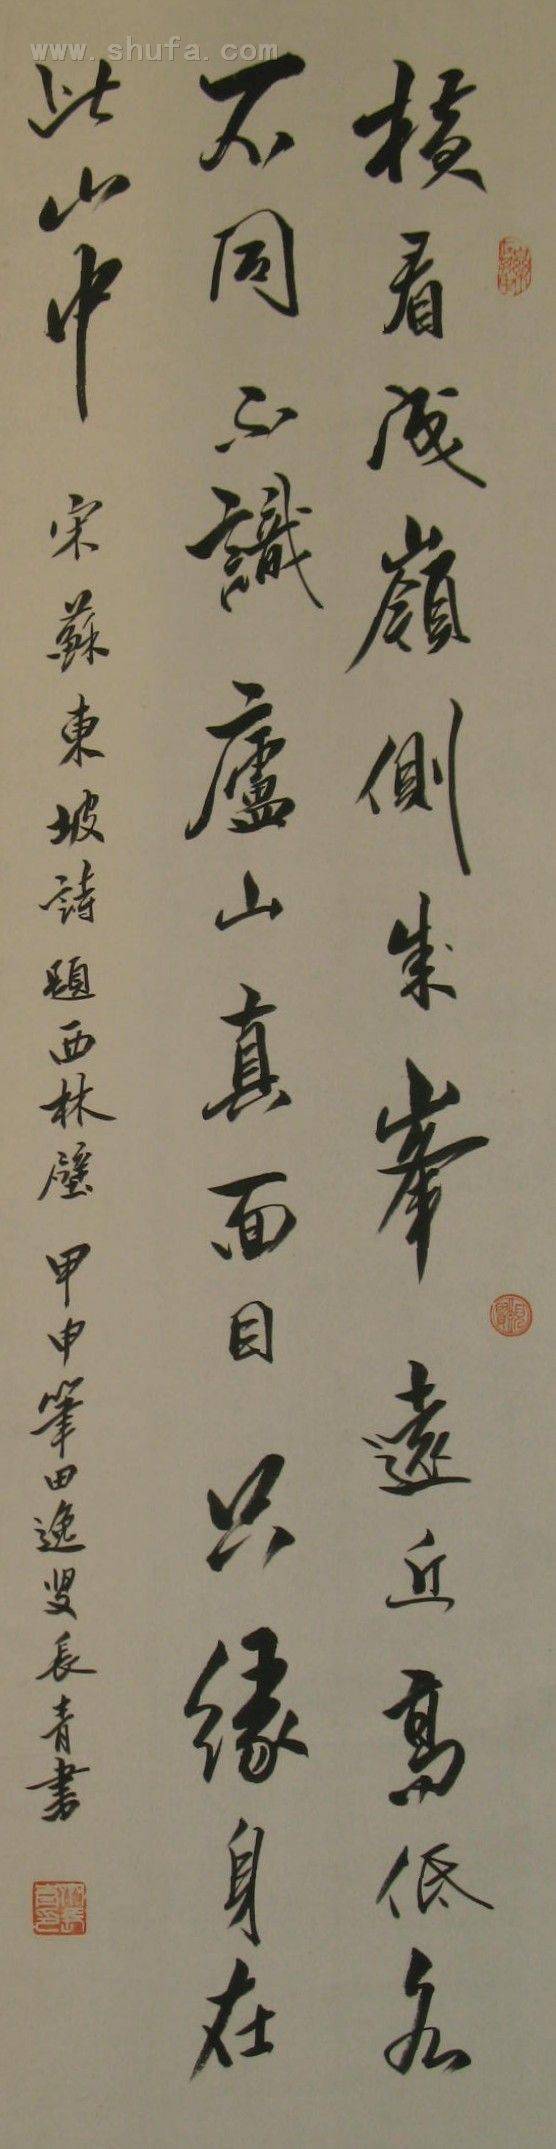 www.shufa.com
橫看成嶺側成峯遠近高低各
不同不識廬山真面目只緣身在
此山中
宋蘇東坡詩題西林壁甲申筆田逸叟長青書